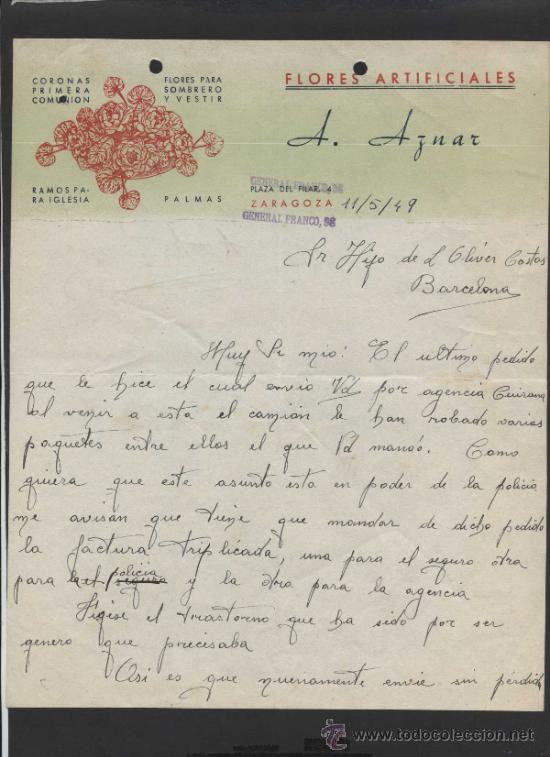 CORONAS
PRIMERA
COMUNION
FLORES PARA
SOMBRERO
Y VESTIR
RAMOS PA-
RA IGLESIA
PALMAS
FLORES ARTIFICIALES
A. Aznar
GENERAL FRANCO, 98
PLAZA DEL PILAR, 4
ZARAGOZA 11/5/49
GENERAL FRANCO, 98
Sr Hijo de L Oliver Costas
Barcelona
Muy Sr mio: El ultimo pedido
que le hice el cual envio Vd por agencia Guirana
al venir a esta el camión le han robado varios
paquetes entre ellos el que Vd mandó. Como
quiera que este asunto esta en poder de la policia
me avisan que tiene que mandar de dicho pedido
la factura triplicada, una para el seguro otra
para la policia y la otra para la agencia
Figise el trastorno que ha sido por ser
genero que precisaba
Asi es que nuevamente envie sin pérdida
todocoleccion
http://www.todocoleccion.net